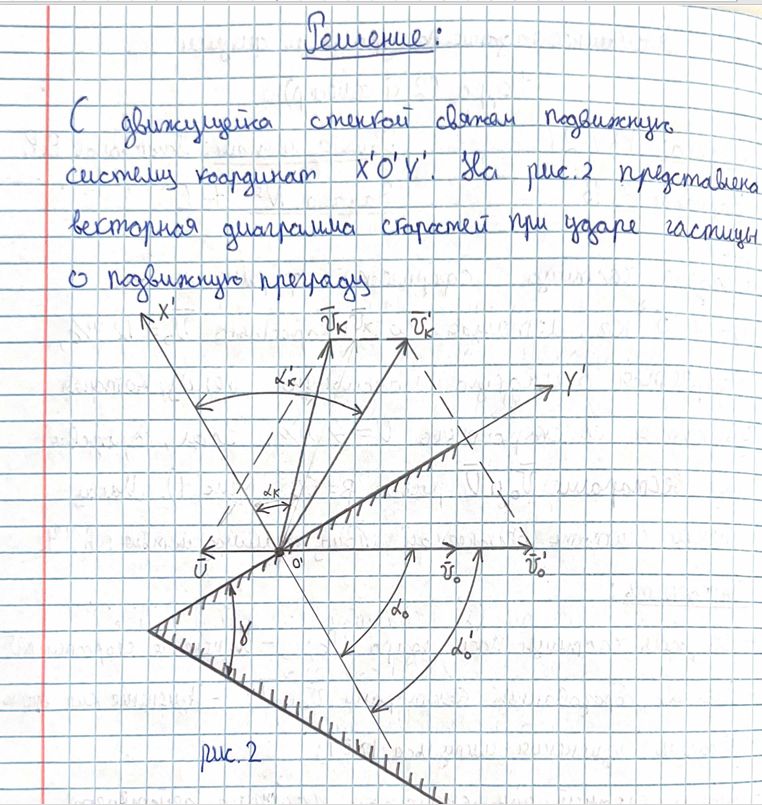 Решение:
С движущейся стенкой свяжем подвижную
систему координат X'O'Y'. На рис.2 представлена
векторная диаграмма скоростей при ударе частицы
о подвижную преграду
X'
v̄к
v̄к'
αк'
Y'
αк
Ū
O'
v̄₀
v̄₀'
α₀
α₀'
γ
рис.2